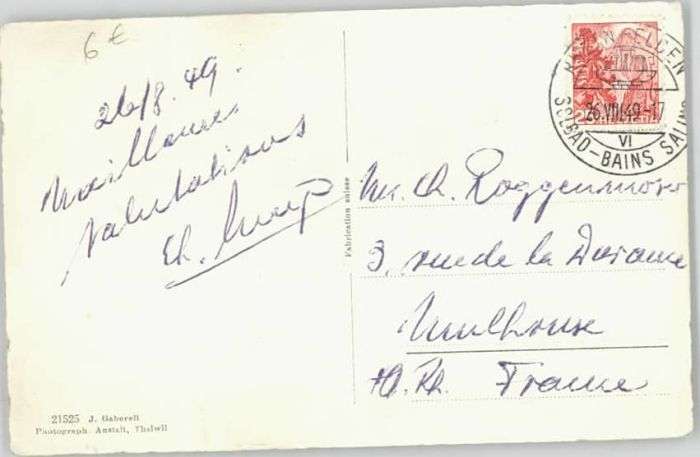 6 €
26/8.49.
Meilleures
salutations
Ch.
Fabrication suisse
RHEINFELDEN
26.VIII.49-17
VI
SOLBAD-BAINS SALINS
Mr. Ch. Roggenmoser
3, rue de la
Mulhouse
Ht. Rh. France
21525 J. Gaberell
Photograph. Anstalt, Thalwil